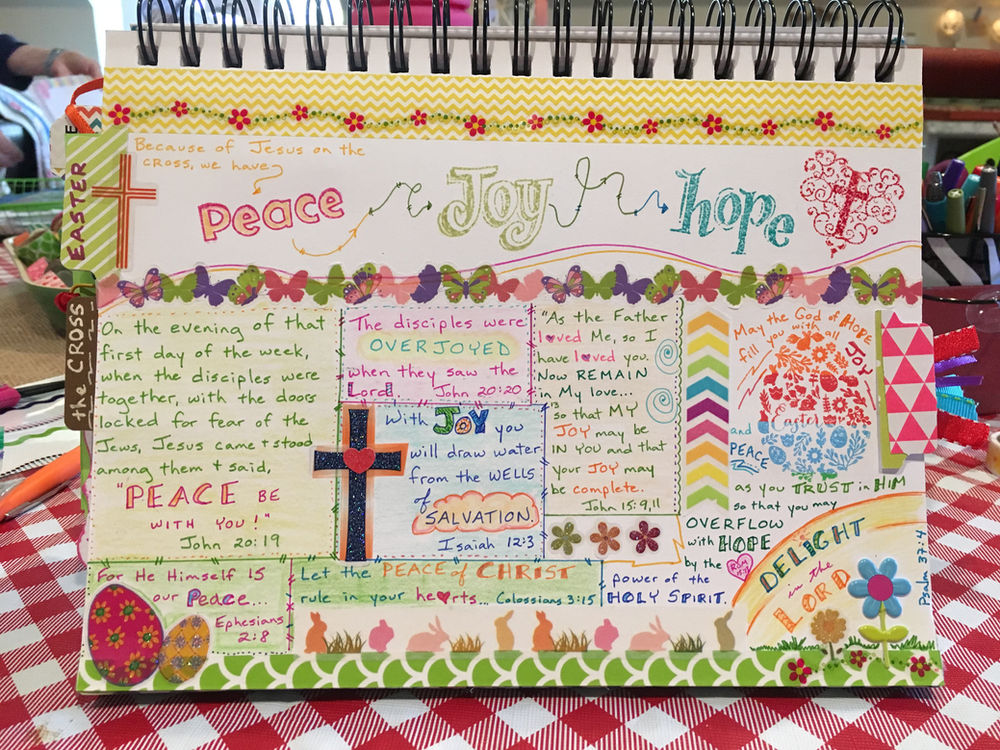 EASTER
the CROSS
Because of Jesus on the
CROSS, we have
peace
Joy
hope
On the evening of that
first day of the week,
when the disciples were
together, with the doors
locked for fear of the
Jews, Jesus came + stood
among them + said,
"PEACE BE
WITH YOU!"
John 20:19
The disciples were
OVERJOYED
when they saw the
Lord! John 20:20
With JOY you
will draw water
from the WELLS
of
SALVATION
Isaiah 12:3
"As the Father
loved Me, so I
have loved you.
Now REMAIN
in My love...
so that MY
JOY may be
IN YOU and that
your JOY may
be complete.
John 15:9,11
May the God of HOPE
fill you with all
JOY
Easter
and
PEACE
as you TRUST in HIM
so that you may
OVERFLOW
with HOPE
by the
power of the
HOLY SPIRIT.
For He Himself IS
our Peace...
Ephesians
2:8
Let the PEACE of CHRIST
rule in your hearts... Colossians 3:15
DELIGHT
in the
LORD
Psalm 37:4